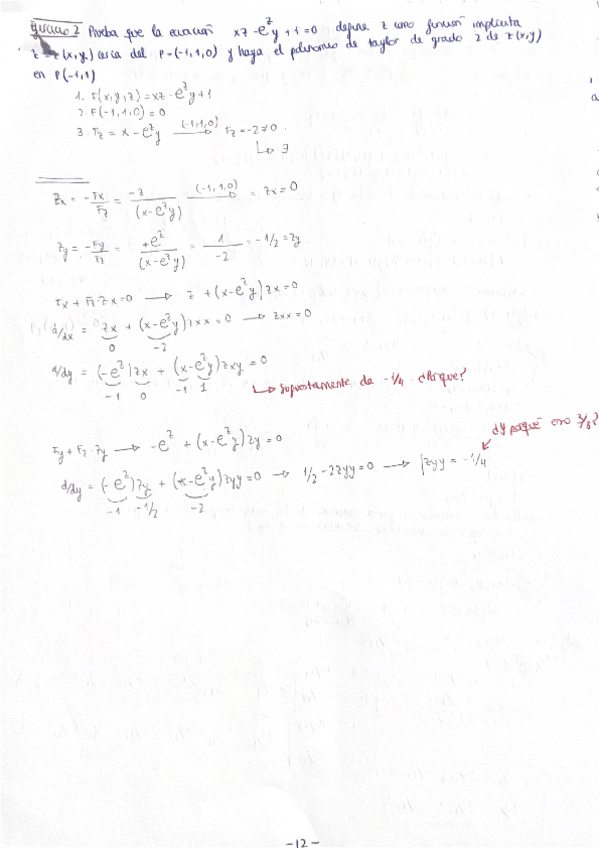 Ejercicio 2 Prueba que la ecuación xz - e^z y + 1 = 0 define z como función implícita
z = z(x,y) cerca del P=(-1,1,0) y haya el polinomio de taylor de grado 2 de z(x,y)
en P(-1,1)
1. F(x,y,z) = xz - e^z y + 1
2. F(-1,1,0) = 0
3. Fz = x - e^z y —(-1,1,0)→ Fz = -2 ≠ 0.
↳ ∃
Zx = -Fx/Fz = -z/(x - e^z y) —(-1,1,0)→ = Zx = 0
Zy = -Fy/Fz = +e^z/(x - e^z y) = 1/-2 = -1/2 = Zy
Fx + Fz·Zx = 0 → z + (x - e^z y) Zx = 0
d/dx = Zx + (x - e^z y) Zxx = 0 → Zxx = 0
0 -2
d/dy = (-e^z) Zx + (x - e^z y) Zxy = 0
-1 0 -1 1
↳ Supuestamente da -1/4 ¿Porque?
Fy + Fz·Zy → -e^z + (x - e^z y) Zy = 0
d/dy = (-e^z) Zy + (x - e^z y) Zyy = 0 → 1/2 - 2Zyy = 0 → Zyy = -1/4
-1 -1/2 -2
-12-